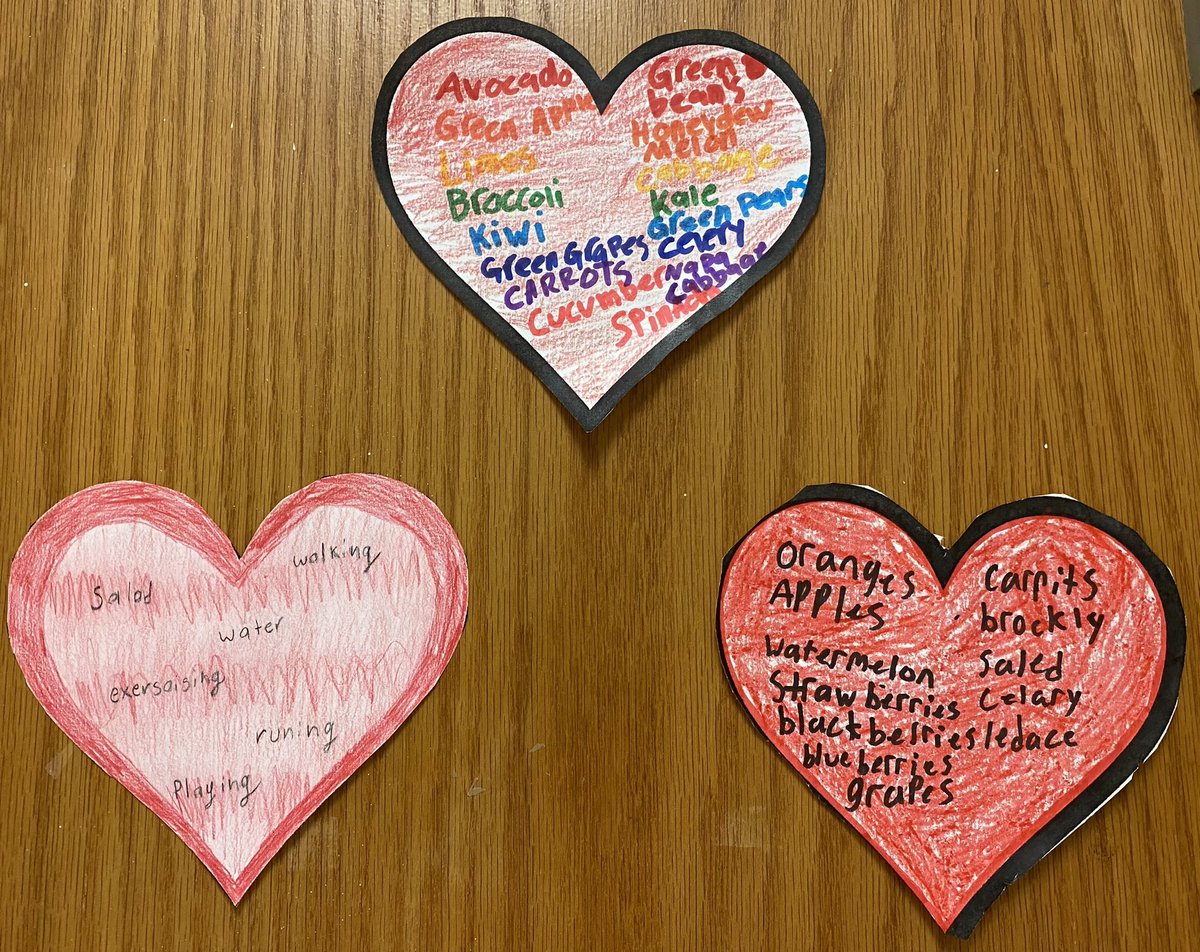 Avocado
Green Apple
Limes
Broccoli
Kiwi
Green Grapes
CARROTS
Cucumber
Green
beans
Honeydew
Melon
Cabbage
Kale
Green Pears
Celery
Napa
Cabbage
walking
Salad
water
exersaising
runing
Playing
Oranges
APPles
Watermelon
Straw berries
blackberries
blue berries
grapes
Carpits
brockly
Saled
Celary
ledace